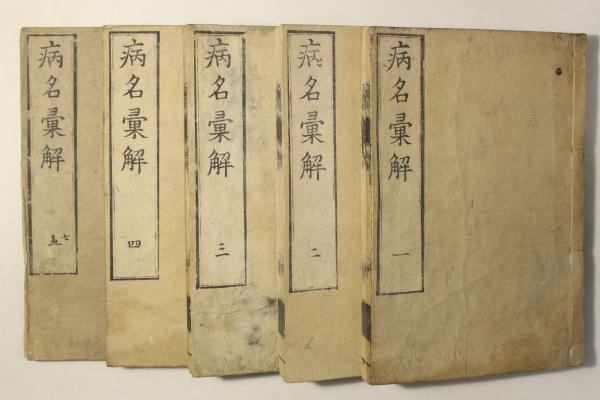 病名彙解 一
病名彙解 二
病名彙解 三
病名彙解 四
病名彙解 五 七